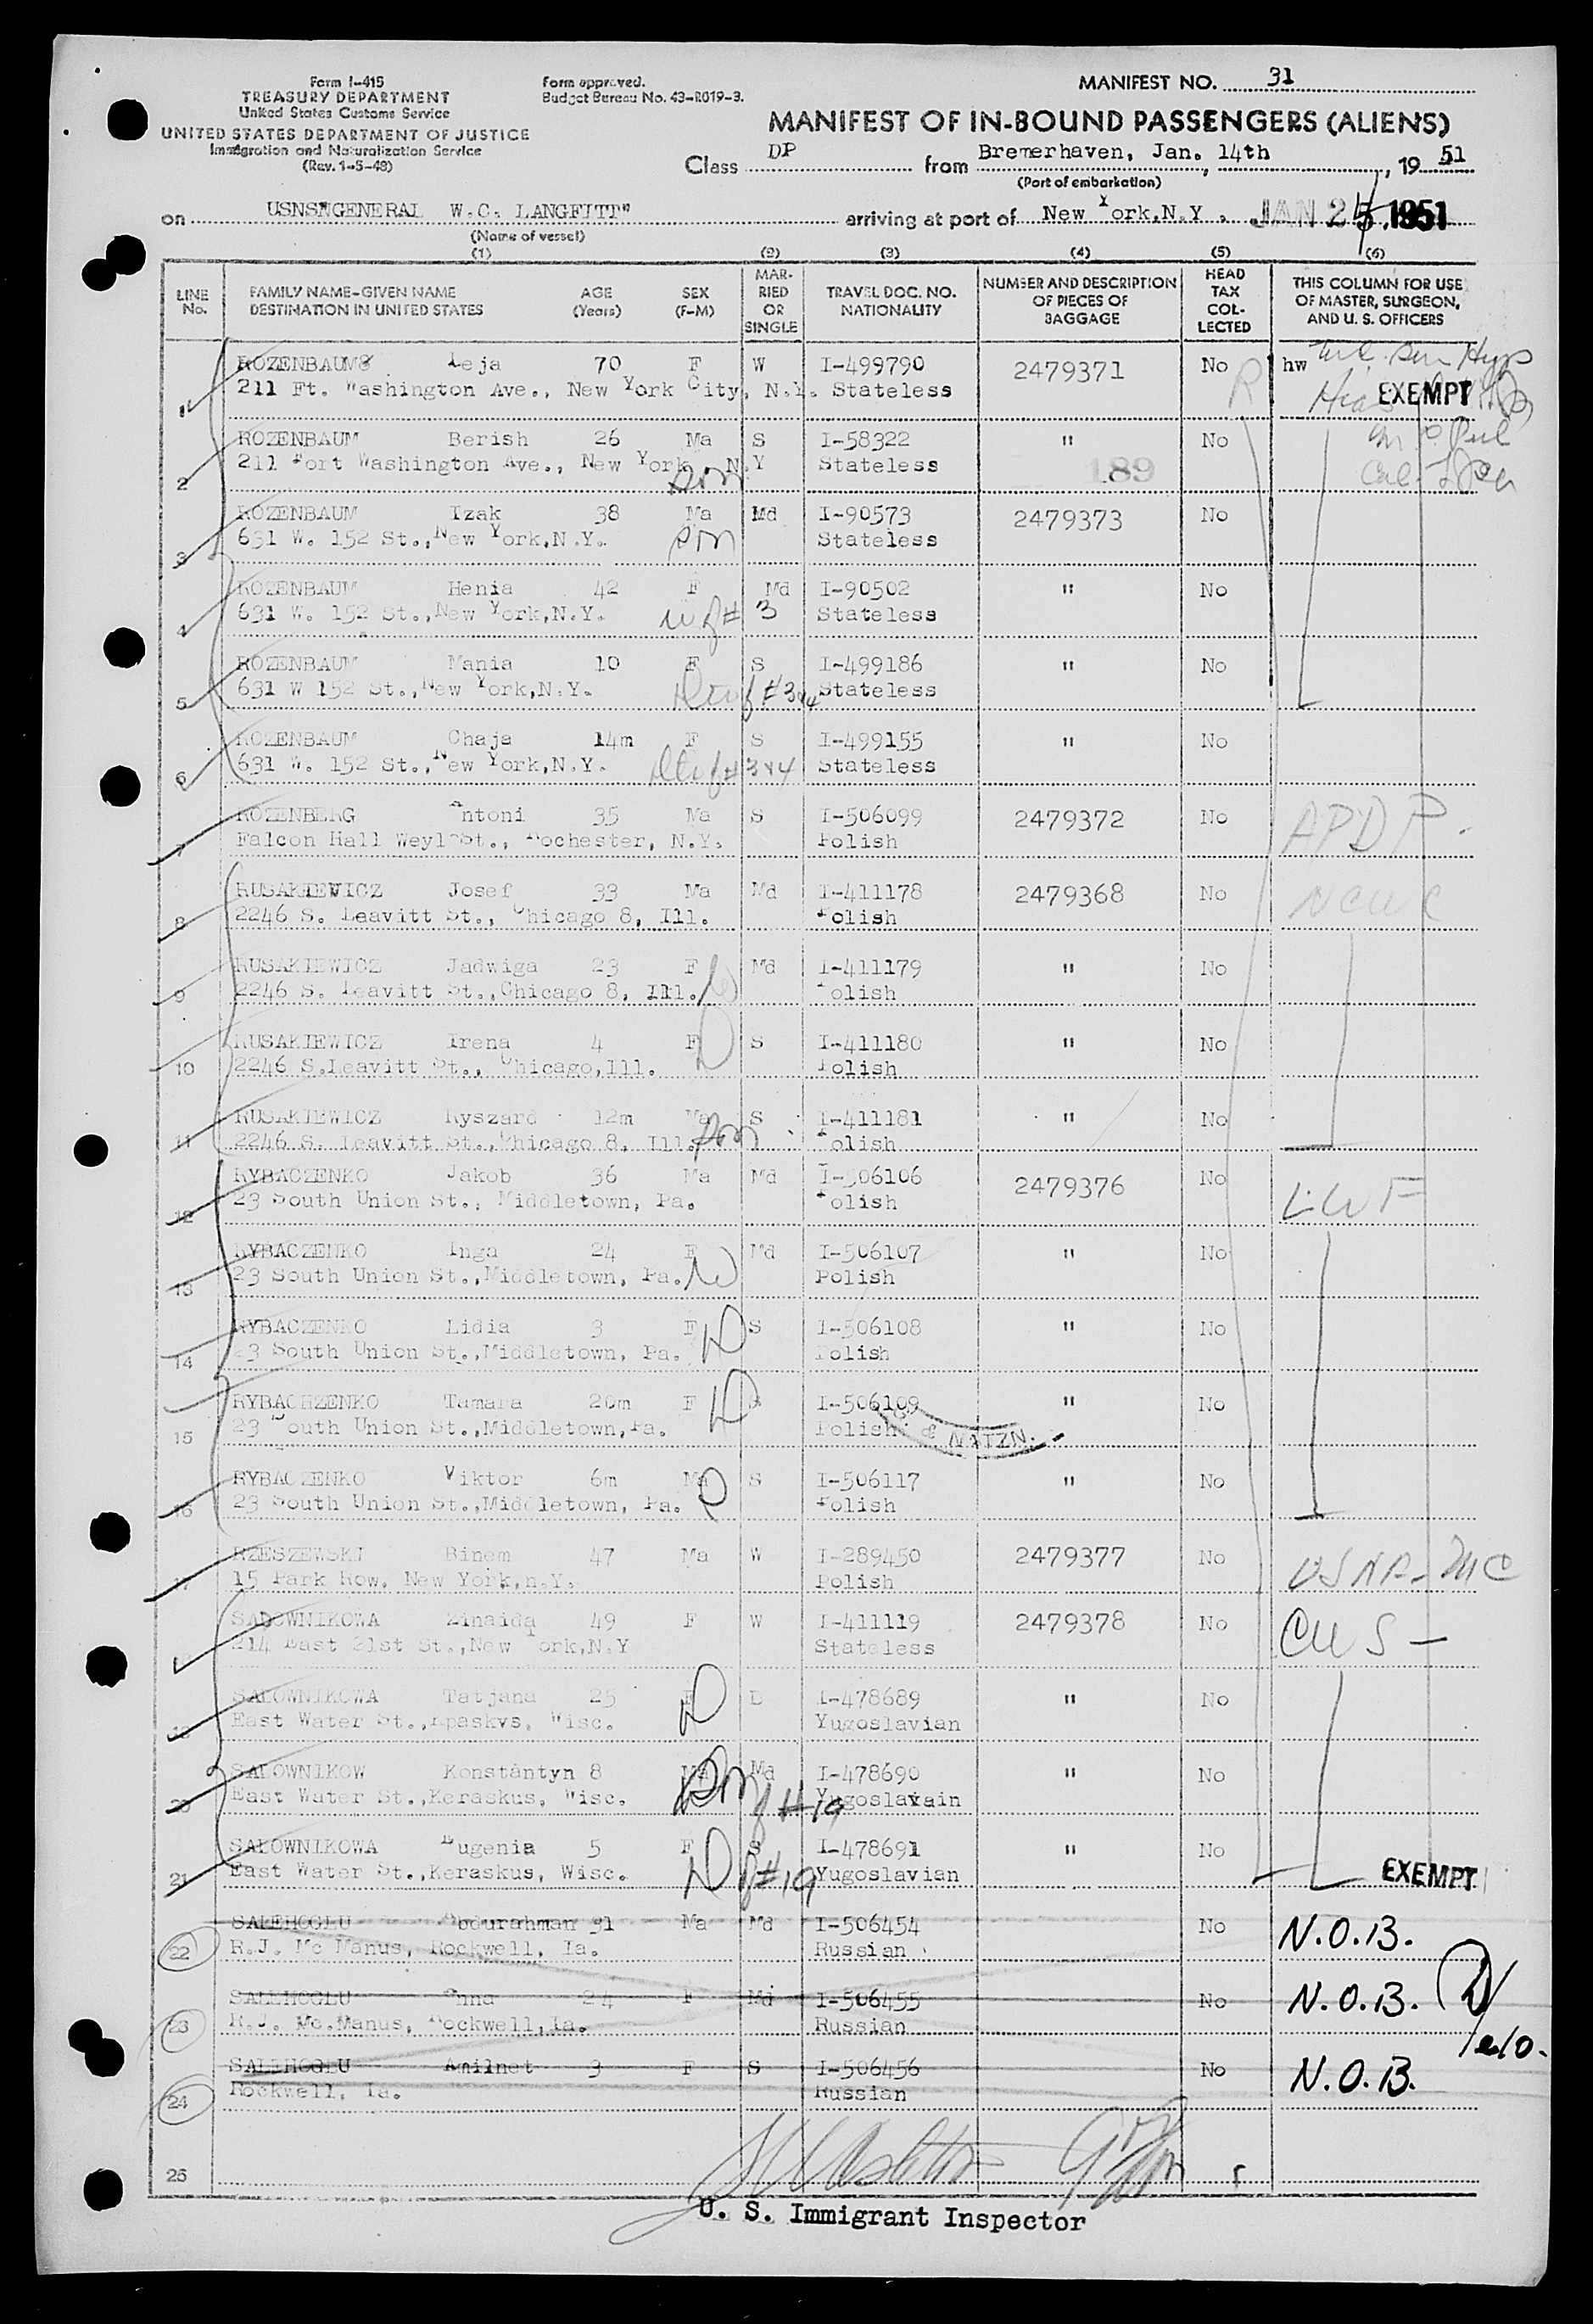 Form I-415
TREASURY DEPARTMENT
United States Customs Service
UNITED STATES DEPARTMENT OF JUSTICE
Immigration and Naturalization Service
(Rev. 1-5-48)
Form approved.
Budget Bureau No. 43-R019-3.
MANIFEST NO. 31
MANIFEST OF IN-BOUND PASSENGERS (ALIENS)
Class DP from Bremerhaven, Jan. 14th, 19 51
(Port of embarkation)
on USNS"GENERAL W.C. LANGFITT" arriving at port of New York,N.Y. JAN 25 1951
(Name of vessel)
(1) (2) (3) (4) (5) (6)
LINE No. FAMILY NAME-GIVEN NAME DESTINATION IN UNITED STATES AGE (Years) SEX (F-M) MARRIED OR SINGLE TRAVEL DOC. NO. NATIONALITY NUMBER AND DESCRIPTION OF PIECES OF BAGGAGE HEAD TAX COLLECTED THIS COLUMN FOR USE OF MASTER, SURGEON, AND U. S. OFFICERS
1 ROZENBAUM Leja 70 F W I-499790 2479371 No R hw
211 Ft. Washington Ave., New York City, N.Y. Stateless EXEMPT
2 ROZENBAUM Berish 26 Ma S I-58322 " No
211 Fort Washington Ave., New York, N.Y son Stateless 189
3 ROZENBAUM Izak 38 Ma Md I-90573 2479373 No
631 W. 152 St.,New York,N.Y. son Stateless
4 ROZENBAUM Henia 42 F Md I-90502 " No
631 W. 152 St.,New York,N.Y. w of # 3 Stateless
5 ROZENBAUM Mania 10 F S I-499186 " No
631 W 152 St.,New York,N.Y. D of #3&4 Stateless
6 ROZENBAUM Chaja 14m F S I-499155 " No
631 W. 152 St.,New York,N.Y. D of #3&4 Stateless
7 ROZENBERG Antoni 35 Ma S I-506099 2479372 No APDP
Falcon Hall Weyl St., Rochester, N.Y. Polish
8 RUSAKIEWICZ Josef 33 Ma Md I-411178 2479368 No NCWC
2246 S. Leavitt St., Chicago 8, Ill. Polish
9 RUSAKIEWICZ Jadwiga 23 F Md I-411179 " No
2246 S. Leavitt St.,Chicago 8, Ill. W Polish
10 RUSAKIEWICZ Irena 4 F S I-411180 " No
2246 S.Leavitt St., Chicago,Ill. D Polish
11 RUSAKIEWICZ Ryszard 12m Ma S I-411181 " No
2246 S. Leavitt St.,Chicago 8, Ill. son Polish
12 RYBACZENKO Jakob 36 Ma Md I-506106 2479376 No LWF
23 South Union St., Middletown, Pa. Polish
13 RYBACZENKO Inga 24 F Md I-506107 " No
23 South Union St.,Middletown, Pa. W Polish
14 RYBACZENKO Lidia 3 F S I-506108 " No
23 South Union St.,Middletown, Pa. D Polish
15 RYBACHZENKO Tamara 20m F D S I-506109 " No
23 South Union St.,Middletown,Pa. Polish & NATZN.
16 RYBACZENKO Viktor 6m Ma S I-506117 " No
23 South Union St.,Middletown, Pa. Polish
17 RZESZEWSKI Binem 47 Ma W I-289450 2479377 No USNA-
15 Park Row, New York,n.Y. Polish
SADOWNIKOWA Zinaida 49 F W I-411119 2479378 No CWS -
214 East 21st St.,New York,N.Y Stateless
19 SALOWNIKOWA Tatjana 25 F D D I-478689 " No
East Water St.,Kpaskvs, Wisc. Yugoslavian
20 SALOWNIKOW Konstantyn 8 Ma Md I-478690 " No
East Water St.,Keraskus, Wisc. son of #19 Yugoslavain
21 SALOWNIKOWA Eugenia 5 F S I-478691 " No
East Water St.,Keraskus, Wisc. D of #19 Yugoslavian EXEMPT
22 SALEHOGLU Abdurahman 31 Ma Md I-506454 No N.O.B.
R.J. Mc Manus, Rockwell, Ia. Russian
23 SALEHOGLU Anna 24 F Md I-506455 No N.O.B.
R.J. Mc.Manus, Rockwell,Ia. Russian
24 SALEHOGLU Amilnet 3 F S I-506456 No N.O.B.
Rockwell, Ia. Russian
25
U. S. Immigrant Inspector